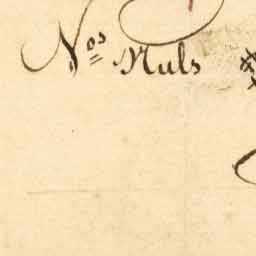 Nos Nuls